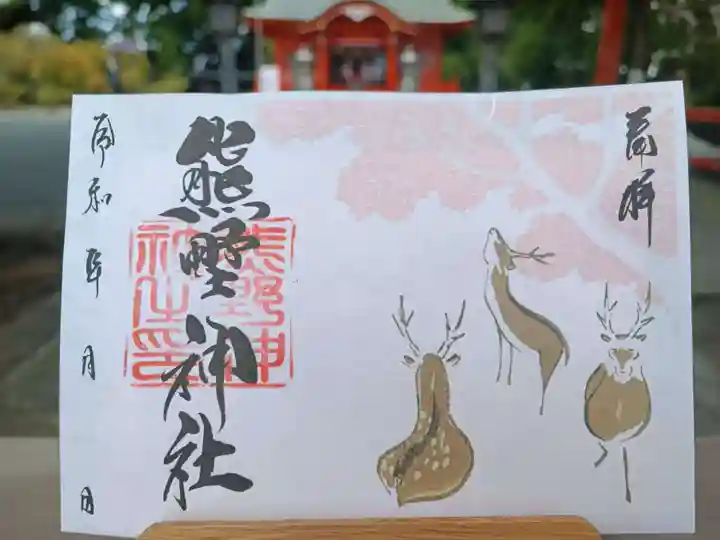 奉拝
熊野神社
熊野神社印
令和 年 月 日